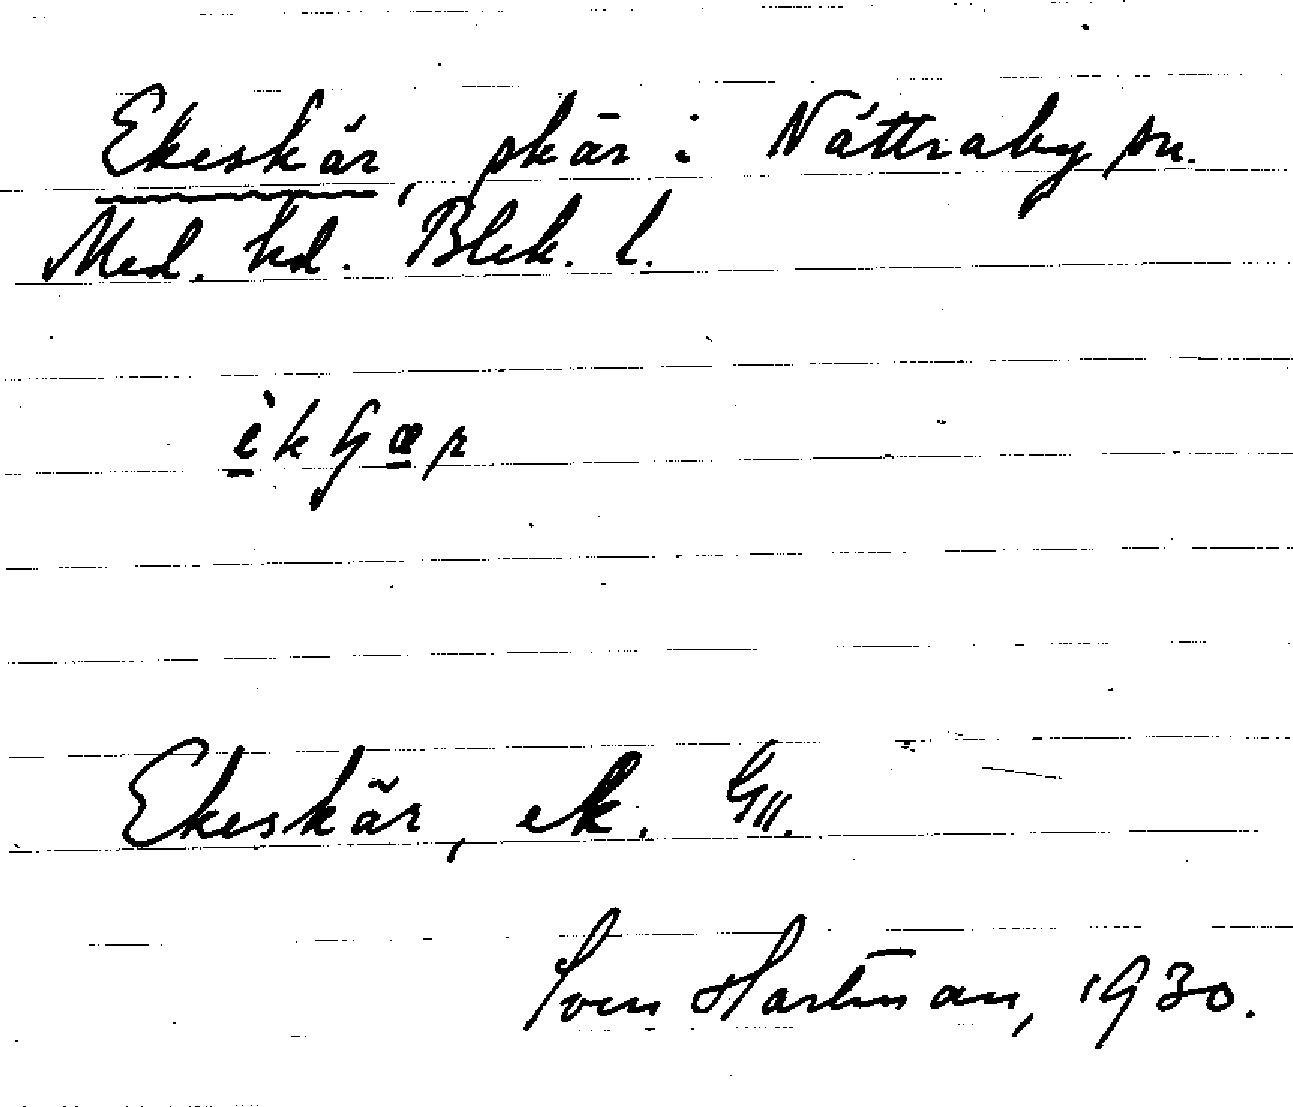 Ekeskär, skär i Nättraby sn.
Med. hd. Blek. l.
Ekeskär, ek.
Sven Hartman, 1930.